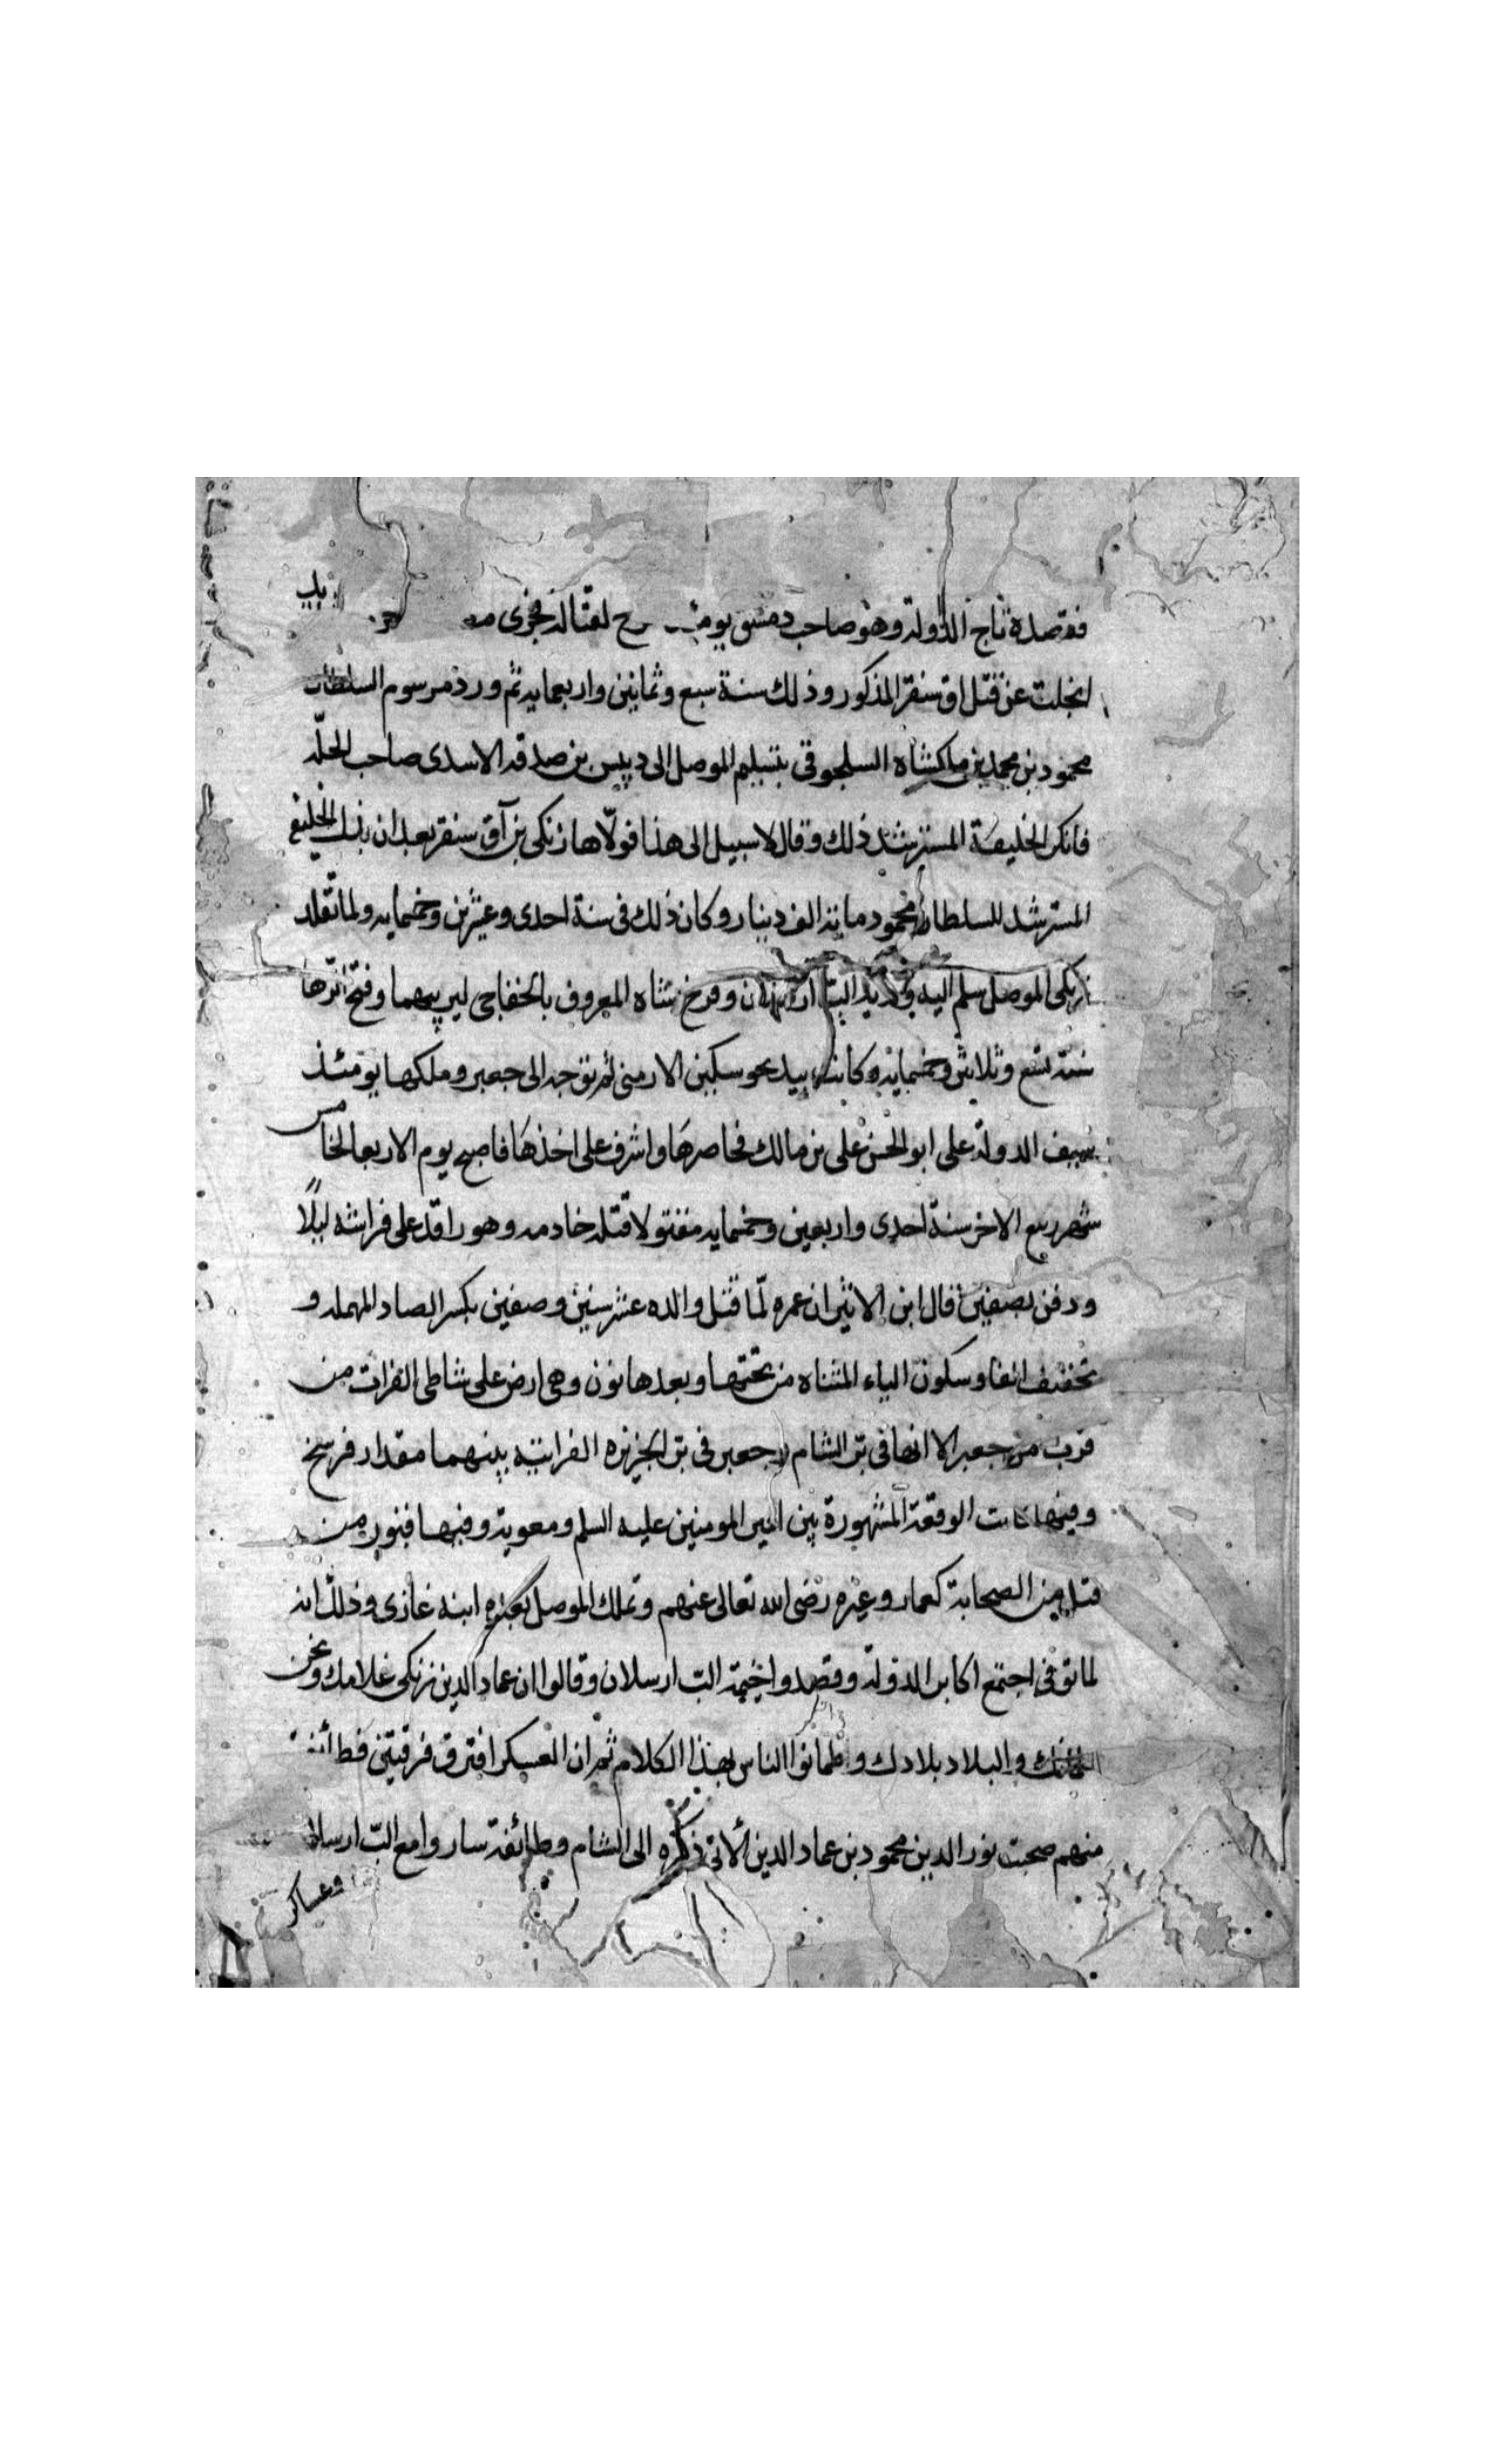 فقصده تاج الدولة وهو صاحب دمشق يومئذ لقتاله فجرى
انجلت عن قتل اق سنقر المذكور وذلك سنة سبع وثمانين واربعمايه ثم ورد مرسوم السلطان
محمود بن محمد بن ملكشاه السلجوقى بتسليم الموصل الى دبيس بن صدقه الاسدى صاحب الحلّه
فانكر الخليفة المسترشد ذلك وقال لا سبيل الى هذا فولّاها زنكى بن آق سنقر بعد ان بذل الخليفة
المسترشد للسلطان محمود مائة الف دينار وكان ذلك فى سنة احدى وعشرين وخمسمايه ولما تقلد
زنكى الموصل سلم اليه ولديه الب ارسلان وفرخ شاه المعروف بالخفاجى ليربيهما وفتح الرها
سنة تسع وثلاثين وخمسمايه وكانت بيد جوسكين الارمنى ثم توجه الى جعبر وملكها يومئذ
سيف الدولة على ابو الحسن على بن مالك فحاصرها واشرف على اخذها فاصبح يوم الاربعا الخامس
شهر ربيع الاخر سنة احدى واربعين وخمسمايه مقتولا قتله خادمه وهو راقد على فراشه ليلًا
ودفن بصفين قال ابن الاثير ان عمره لمّا قتل والده عشر سنين وصفين بكسر الصاد المهمله و
تخفيف الفا وسكون الياء المثناه من تحتها وبعدها نون وهى ارض على شاطى الفرات من
قرب من جعبر الا انها فى بر الشام وجعبر فى بر الجزيره الفراتيه بينهما مقدار فرسخ
وفيها كانت الوقعة المشهورة بين امير المومنين عليه السلم ومعوية وفيها قبور من
قتل من الصحابة كعمار وغيره رضى الله تعالى عنهم وتملك الموصل بعده ابنه غازى وذلك انه
لما توفى اجتمع اكابر الدولة وقصدوا خيمة الب ارسلان وقالوا ان عماد الدين زنكى غلامك ونحن
والبلاد بلادك وطمانوا الناس بهذا الكلام ثم ان العسكر افترق فرقتين فطائفة
منهم صحبت نور الدين محمود بن عماد الدين الاتى ذكره الى الشام وطائفة ساروا مع الب ارسلان
وعساكر